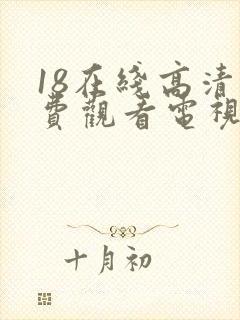 18在綫高清
費觀看電視
十月初